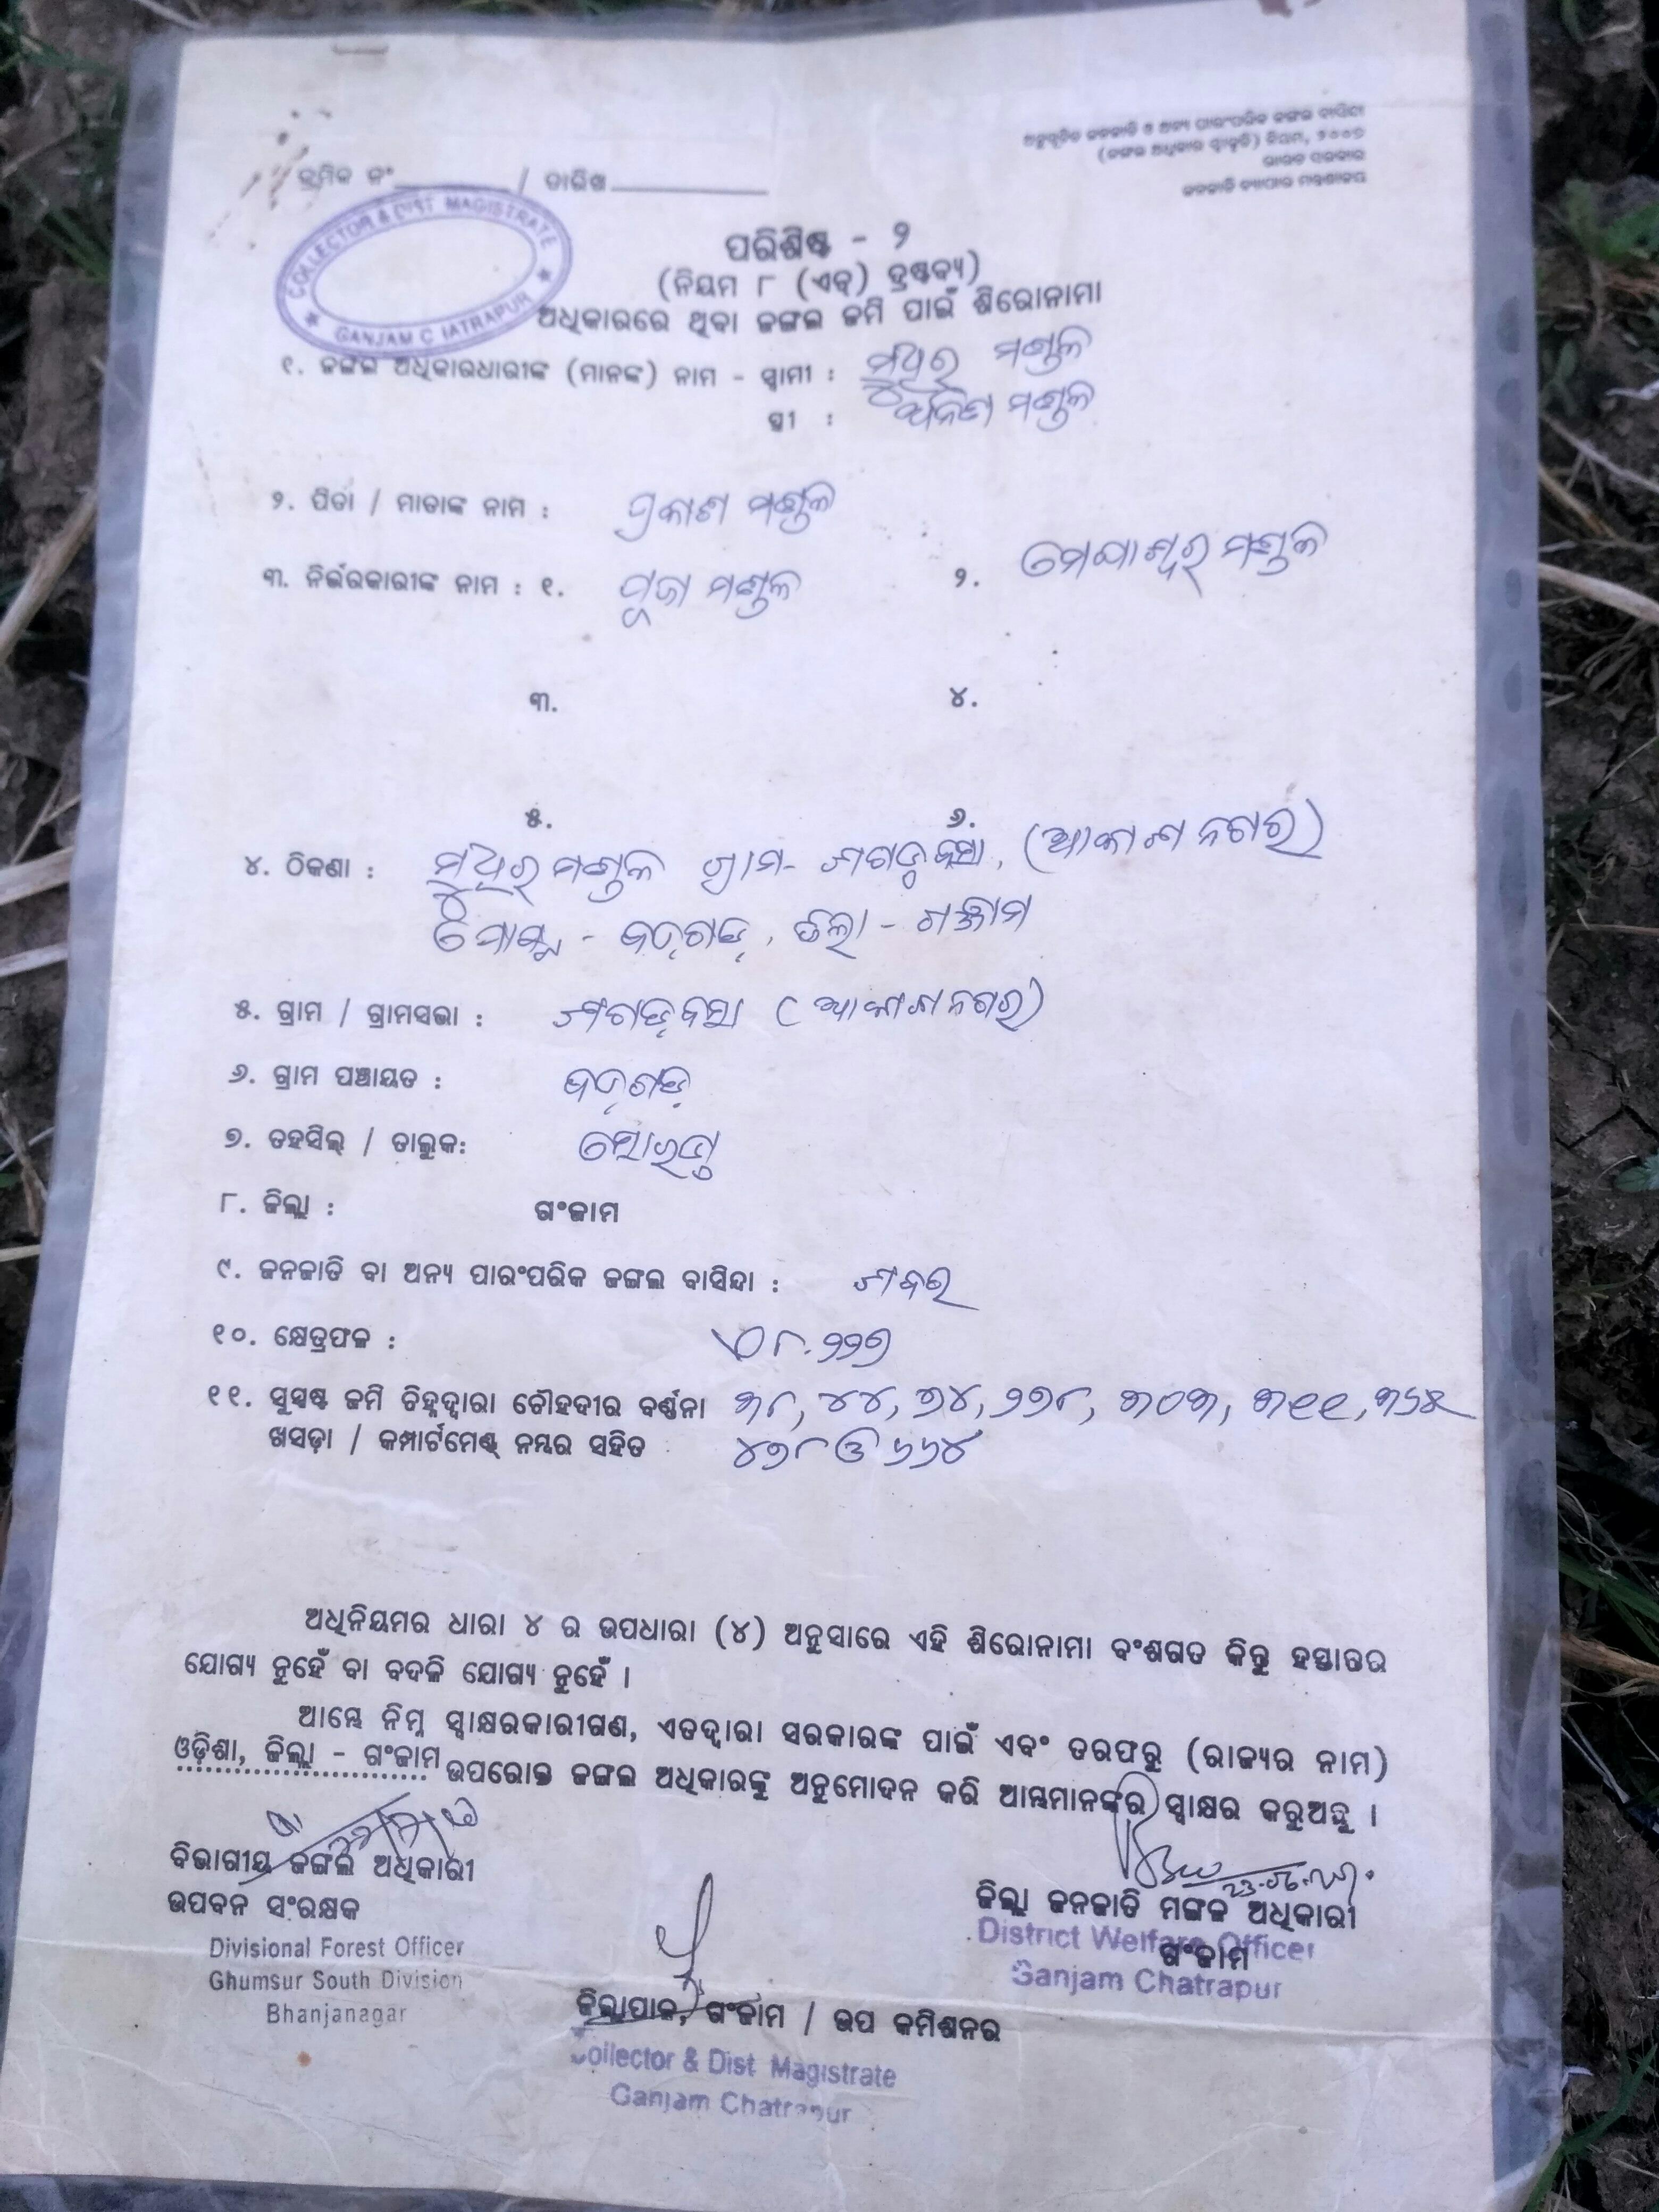 ଅନୁସୂଚିତ ଜନଜାତି ଓ ଅନ୍ୟ ପାରଂପରିକ ଜଙ୍ଗଲ ବାସିନ୍ଦା
(ଜଙ୍ଗଲ ଅଧିକାର ସ୍ୱୀକୃତି) ନିୟମ, ୨୦୦୭
ଭାରତ ସରକାର
ଜନଜାତି ବ୍ୟାପାର ମନ୍ତ୍ରଣାଳୟ
କ୍ରମିକ ନଂ / ତାରିଖ
COLLECTOR & DIST MAGISTRATE
GANJAM C IATRAPUR
ପରିଶିଷ୍ଟ - ୨
(ନିୟମ ୮ (ଏବ୍) ଦ୍ରଷ୍ଟବ୍ୟ)
ଅଧିକାରରେ ଥିବା ଜଙ୍ଗଲ ଜମି ପାଇଁ ଶିରୋନାମା
୧. ଜଙ୍ଗଲ ଅଧିକାରଧାରୀଙ୍କ (ମାନଙ୍କ) ନାମ - ସ୍ୱାମୀ : ମଣ୍ଡଳ
ସ୍ତ୍ରୀ : ମଣ୍ଡଳ
୨. ପିତା / ମାତାଙ୍କ ନାମ : ପ୍ରକାଶ ମଣ୍ଡଳ
୩. ନିର୍ଭରକାରୀଙ୍କ ନାମ : ୧. ପୂଜା ମଣ୍ଡଳ ୨. ମଣ୍ଡଳ
୩. ୪.
୫. ୬.
୪. ଠିକଣା : ମଣ୍ଡଳ ଗ୍ରାମ- (ଆକାଶ ନଗର)
ବଡ଼ଗଡ଼, ଜିଲା - ଗଞ୍ଜାମ
୫. ଗ୍ରାମ / ଗ୍ରାମସଭା : (ଆକାଶ ନଗର)
୬. ଗ୍ରାମ ପଞ୍ଚାୟତ : ବଡ଼ଗଡ଼
୭. ତହସିଲ୍ / ତାଲୁକ: ସୋରଡ଼ା
୮. ଜିଲ୍ଲା : ଗଂଜାମ
୯. ଜନଜାତି ବା ଅନ୍ୟ ପାରଂପରିକ ଜଙ୍ଗଲ ବାସିନ୍ଦା : ଶବର
୧୦. କ୍ଷେତ୍ରଫଳ : ୦୮.୨୨୭
୧୧. ସୁସ୍ପଷ୍ଟ ଜମି ଚିହ୍ନଦ୍ୱାରା ଚୌହଦୀର ବର୍ଣ୍ଣନା ୩୮, ୪୪, ୭୪, ୨୭୮, ୩୦୩, ୩୧୧, ୩୬୫
ଖସଡ଼ା / କମ୍ପାର୍ଟମେଣ୍ଟ୍ ନମ୍ବର ସହିତ ୪୭୮ ଓ ୬୬୪
ଅଧିନିୟମର ଧାରା ୪ ର ଉପଧାରା (୪) ଅନୁସାରେ ଏହି ଶିରୋନାମା ବଂଶଗତ କିନ୍ତୁ ହସ୍ତାନ୍ତର
ଯୋଗ୍ୟ ନୁହେଁ ବା ବଦଳି ଯୋଗ୍ୟ ନୁହେଁ ।
ଆମ୍ଭେ ନିମ୍ନ ସ୍ୱାକ୍ଷରକାରୀଗଣ, ଏତଦ୍ୱାରା ସରକାରଙ୍କ ପାଇଁ ଏବଂ ତରଫରୁ (ରାଜ୍ୟର ନାମ)
ଓଡ଼ିଶା, ଜିଲ୍ଲା - ଗଂଜାମ ଉପରୋକ୍ତ ଜଙ୍ଗଲ ଅଧିକାରକୁ ଅନୁମୋଦନ କରି ଆମ୍ଭମାନଙ୍କର ସ୍ୱାକ୍ଷର କରୁଅଛୁ ।
ବିଭାଗୀୟ ଜଙ୍ଗଲ ଅଧିକାରୀ
ଉପବନ ସଂରକ୍ଷକ
Divisional Forest Officer
Ghumsur South Division
Bhanjanagar
ଜିଲ୍ଲା ଜନଜାତି ମଙ୍ଗଳ ଅଧିକାରୀ
ଗଂଜାମ
District Welfare Officer
Ganjam Chatrapur
ଜିଲ୍ଲାପାଳ, ଗଂଜାମ / ଉପ କମିଶନର
Collector & Dist. Magistrate
Ganjam Chatrapur